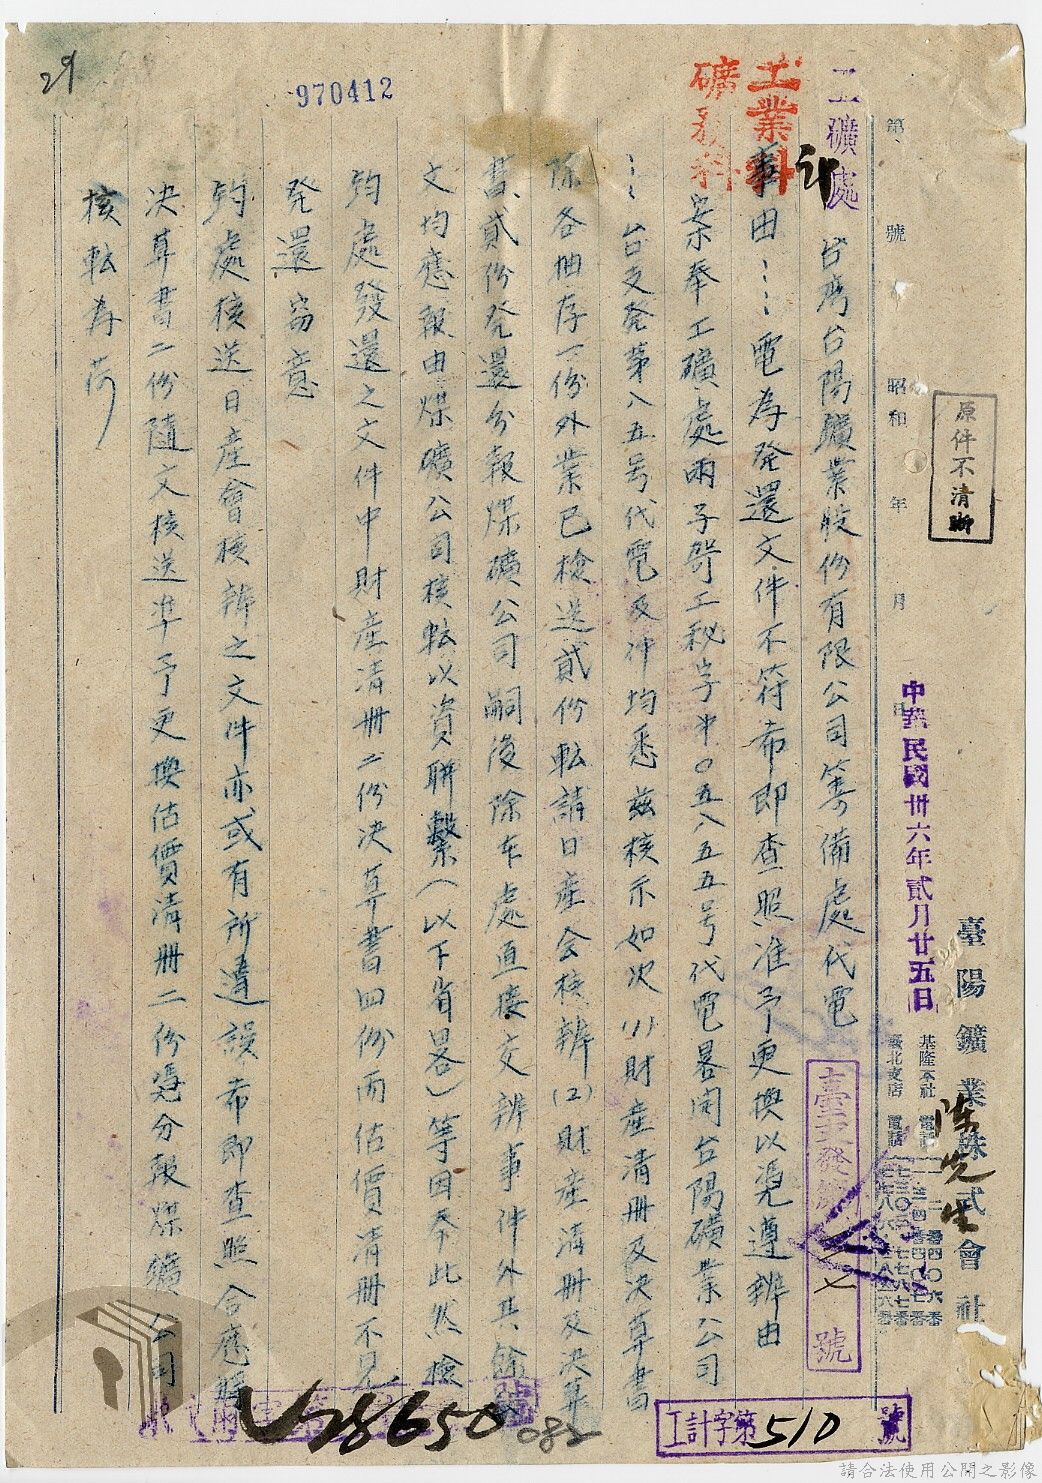 臺陽鑛業株式會社
基隆本社 電話
臺北支店 電話
陳先生
原件不清晰
第 號 昭和 年 月 日
中華民國卅六年貳月廿五日
工礦處
台灣台陽鑛業股份有限公司籌備處代電
臺更發第 號
工業科
礦務科
事由⋯⋯電為発還文件不符希即查照准予更換以憑遵辦由
案奉工礦處兩子 工秘字第〇五八五五号代電畧開台陽礦業公司
⋯台支発第八五号代電及件均悉茲核示如次(1)財產清册及決算書
除各抽存一份外業已檢送貳份転請日產会核辦(2)財產清册及決算
書貳份発還分報煤礦公司嗣後除本處直接交辦事件外其餘
文均應報由煤礦公司核転以資聯繫(以下省畧)等因奉此然檢
鈞處發還之文件中財產清册二份決算書四份而估價清册不見
発還窃意
鈞處核送日產會核辦之文件亦或有所遺誤希即查照合應
決算書二份隨文核送準予更換估價清册二份憑分報煤鑛公司
核転為荷
29
970412
28650
082
工計字第510號
請合法使用公開之影像